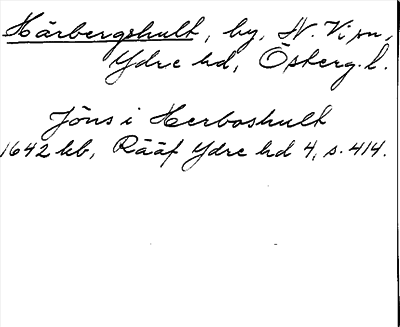 Härbergshult, by, N. Vi sn,
Ydre hd, Österg. l.
Jöns i Herboshult
1642 kb, Rääf Ydre hd 4, s. 414.